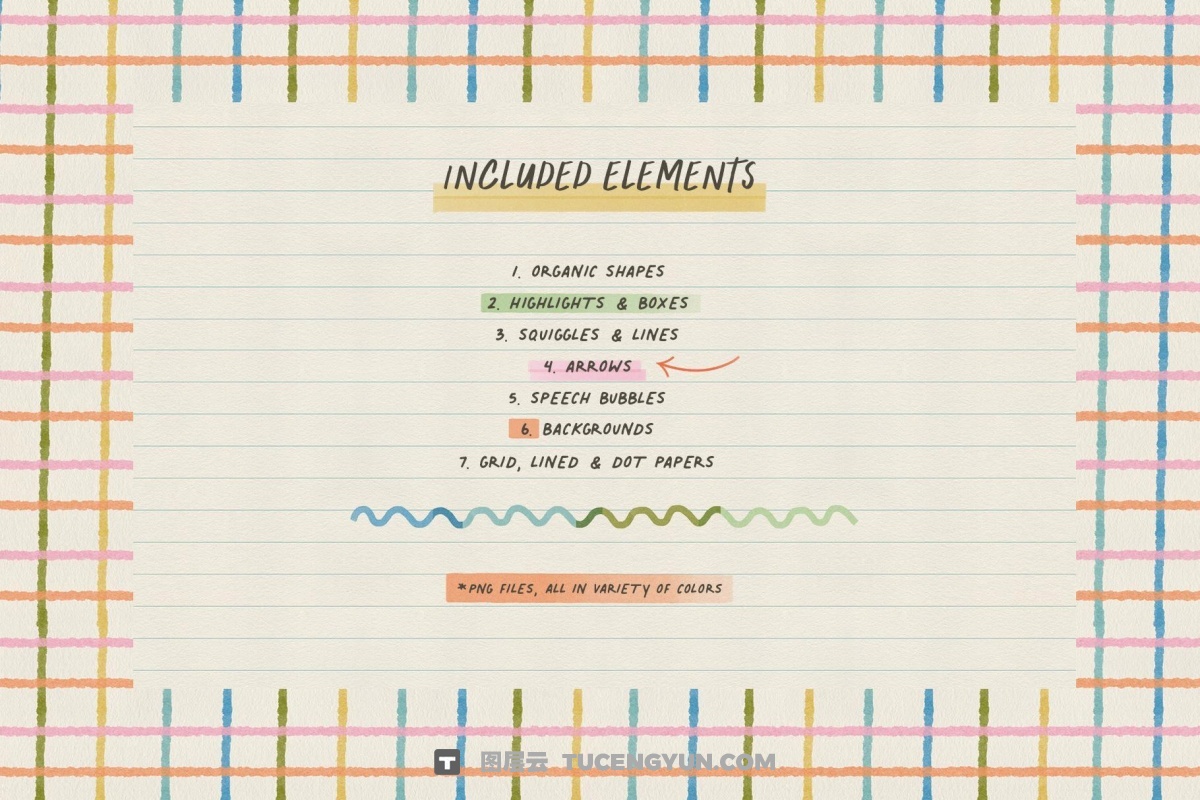 INCLUDED ELEMENTS
1. ORGANIC SHAPES
2. HIGHLIGHTS & BOXES
3. SQUIGGLES & LINES
4. ARROWS
5. SPEECH BUBBLES
6. BACKGROUNDS
7. GRID, LINED & DOT PAPERS
*PNG FILES, ALL IN VARIETY OF COLORS
T 图层云 TUCENGYUN.COM